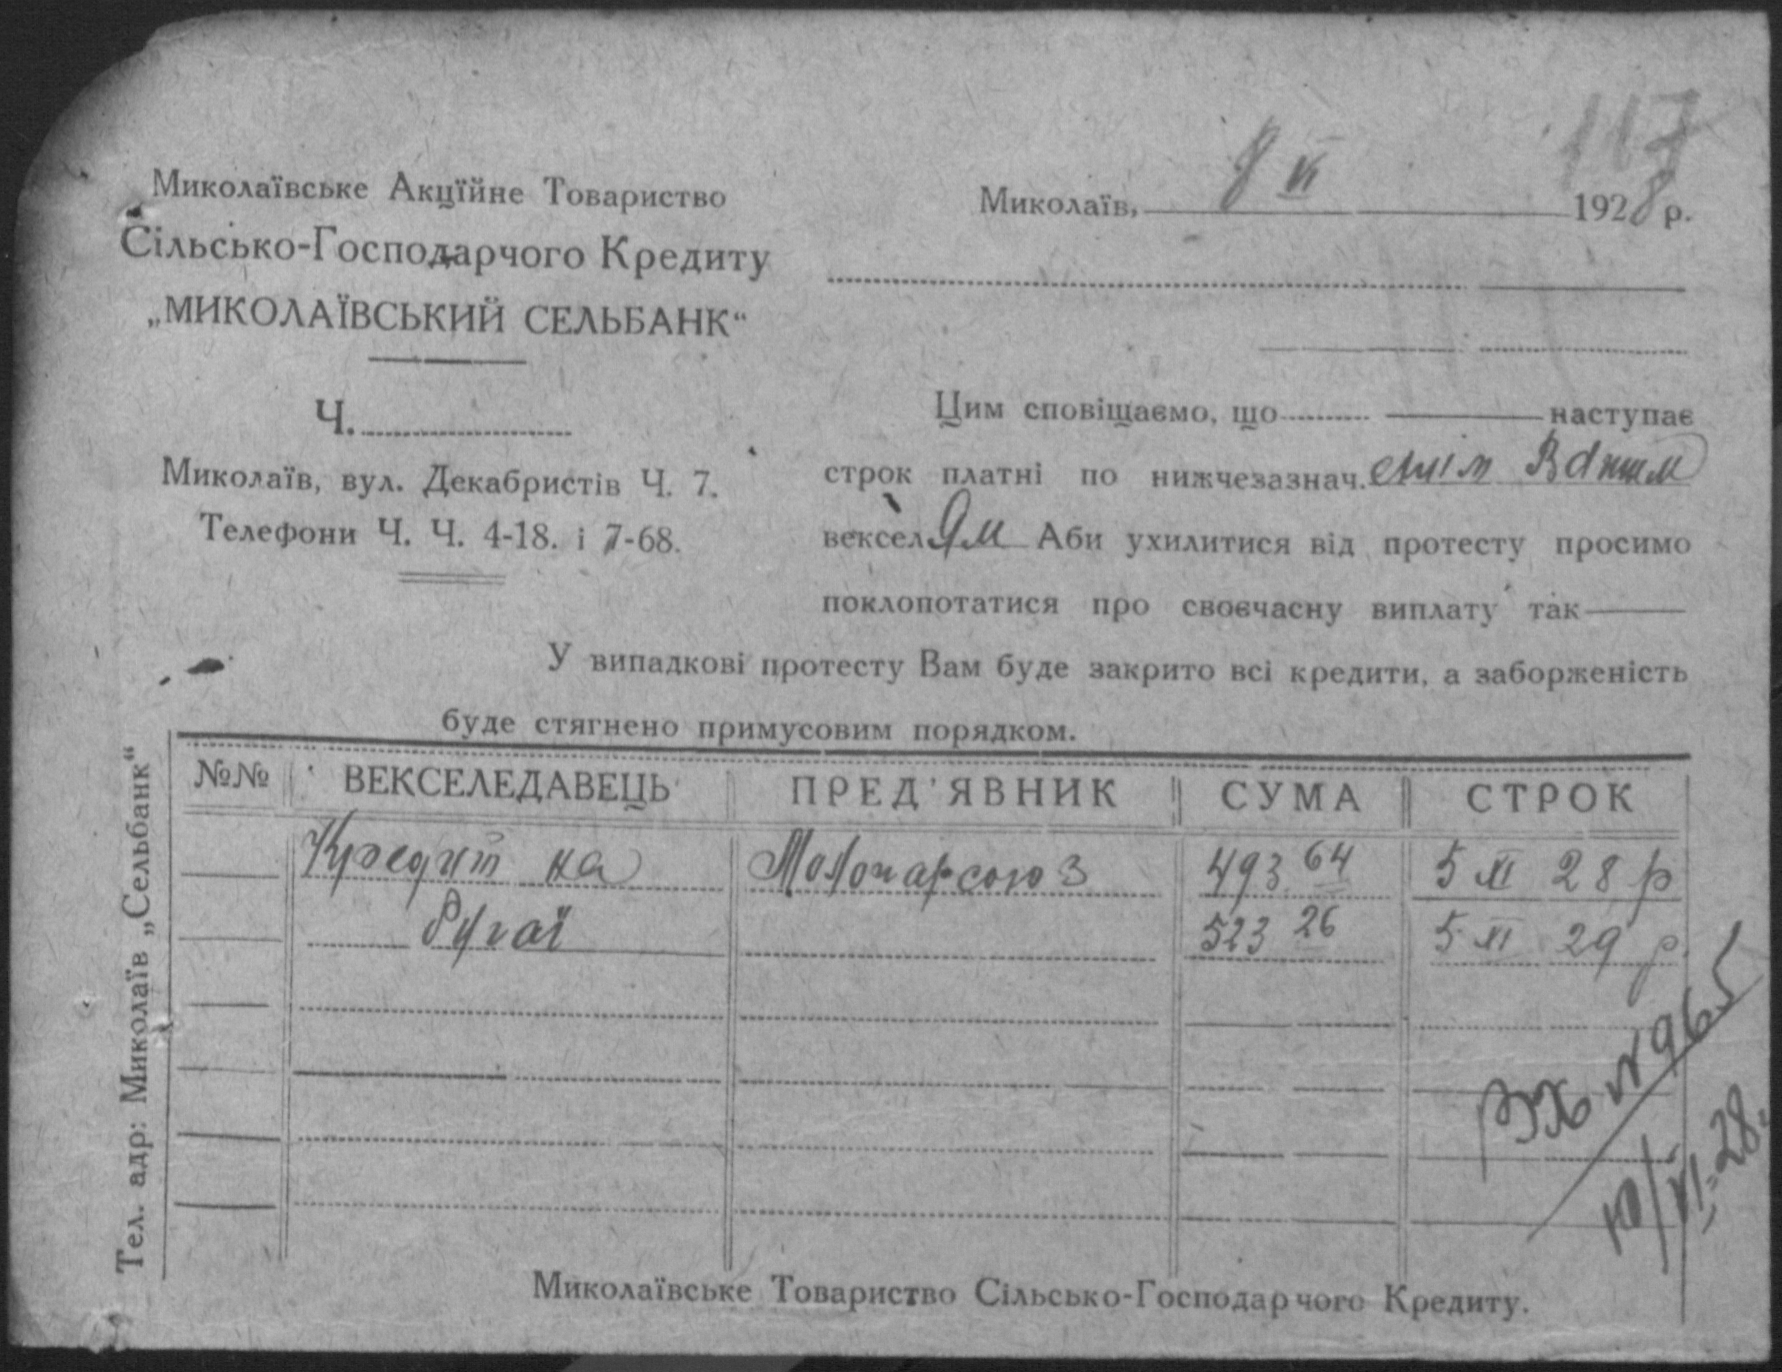 117
Миколаївське Акційне Товариство
Сільсько-Господарчого Кредиту
„МИКОЛАЇВСЬКИЙ СЕЛЬБАНК“
Ч.
Миколаїв, вул. Декабристів Ч. 7.
Телефони Ч. Ч. 4-18. і 7-68.
Миколаїв, 8 VI 1928 р.
Цим сповіщаємо, що наступає
строк платні по нижчезазнач.еним Вашим
векселям Аби ухилитися від протесту просимо
поклопотатися про своєчасну виплату так
У випадкові протесту Вам буде закрито всі кредити, а заборженість
буде стягнено примусовим порядком.
Тел. адр: Миколаїв „Сельбанк“
№№ ВЕКСЕЛЕДАВЕЦЬ ПРЕД'ЯВНИК СУМА СТРОК
Кредит на 493 64 5 XI 28 р
523 26 5 XI 29 р.
№ 965
10/VI-28.
Миколаївське Товариство Сільсько-Господарчого Кредиту.